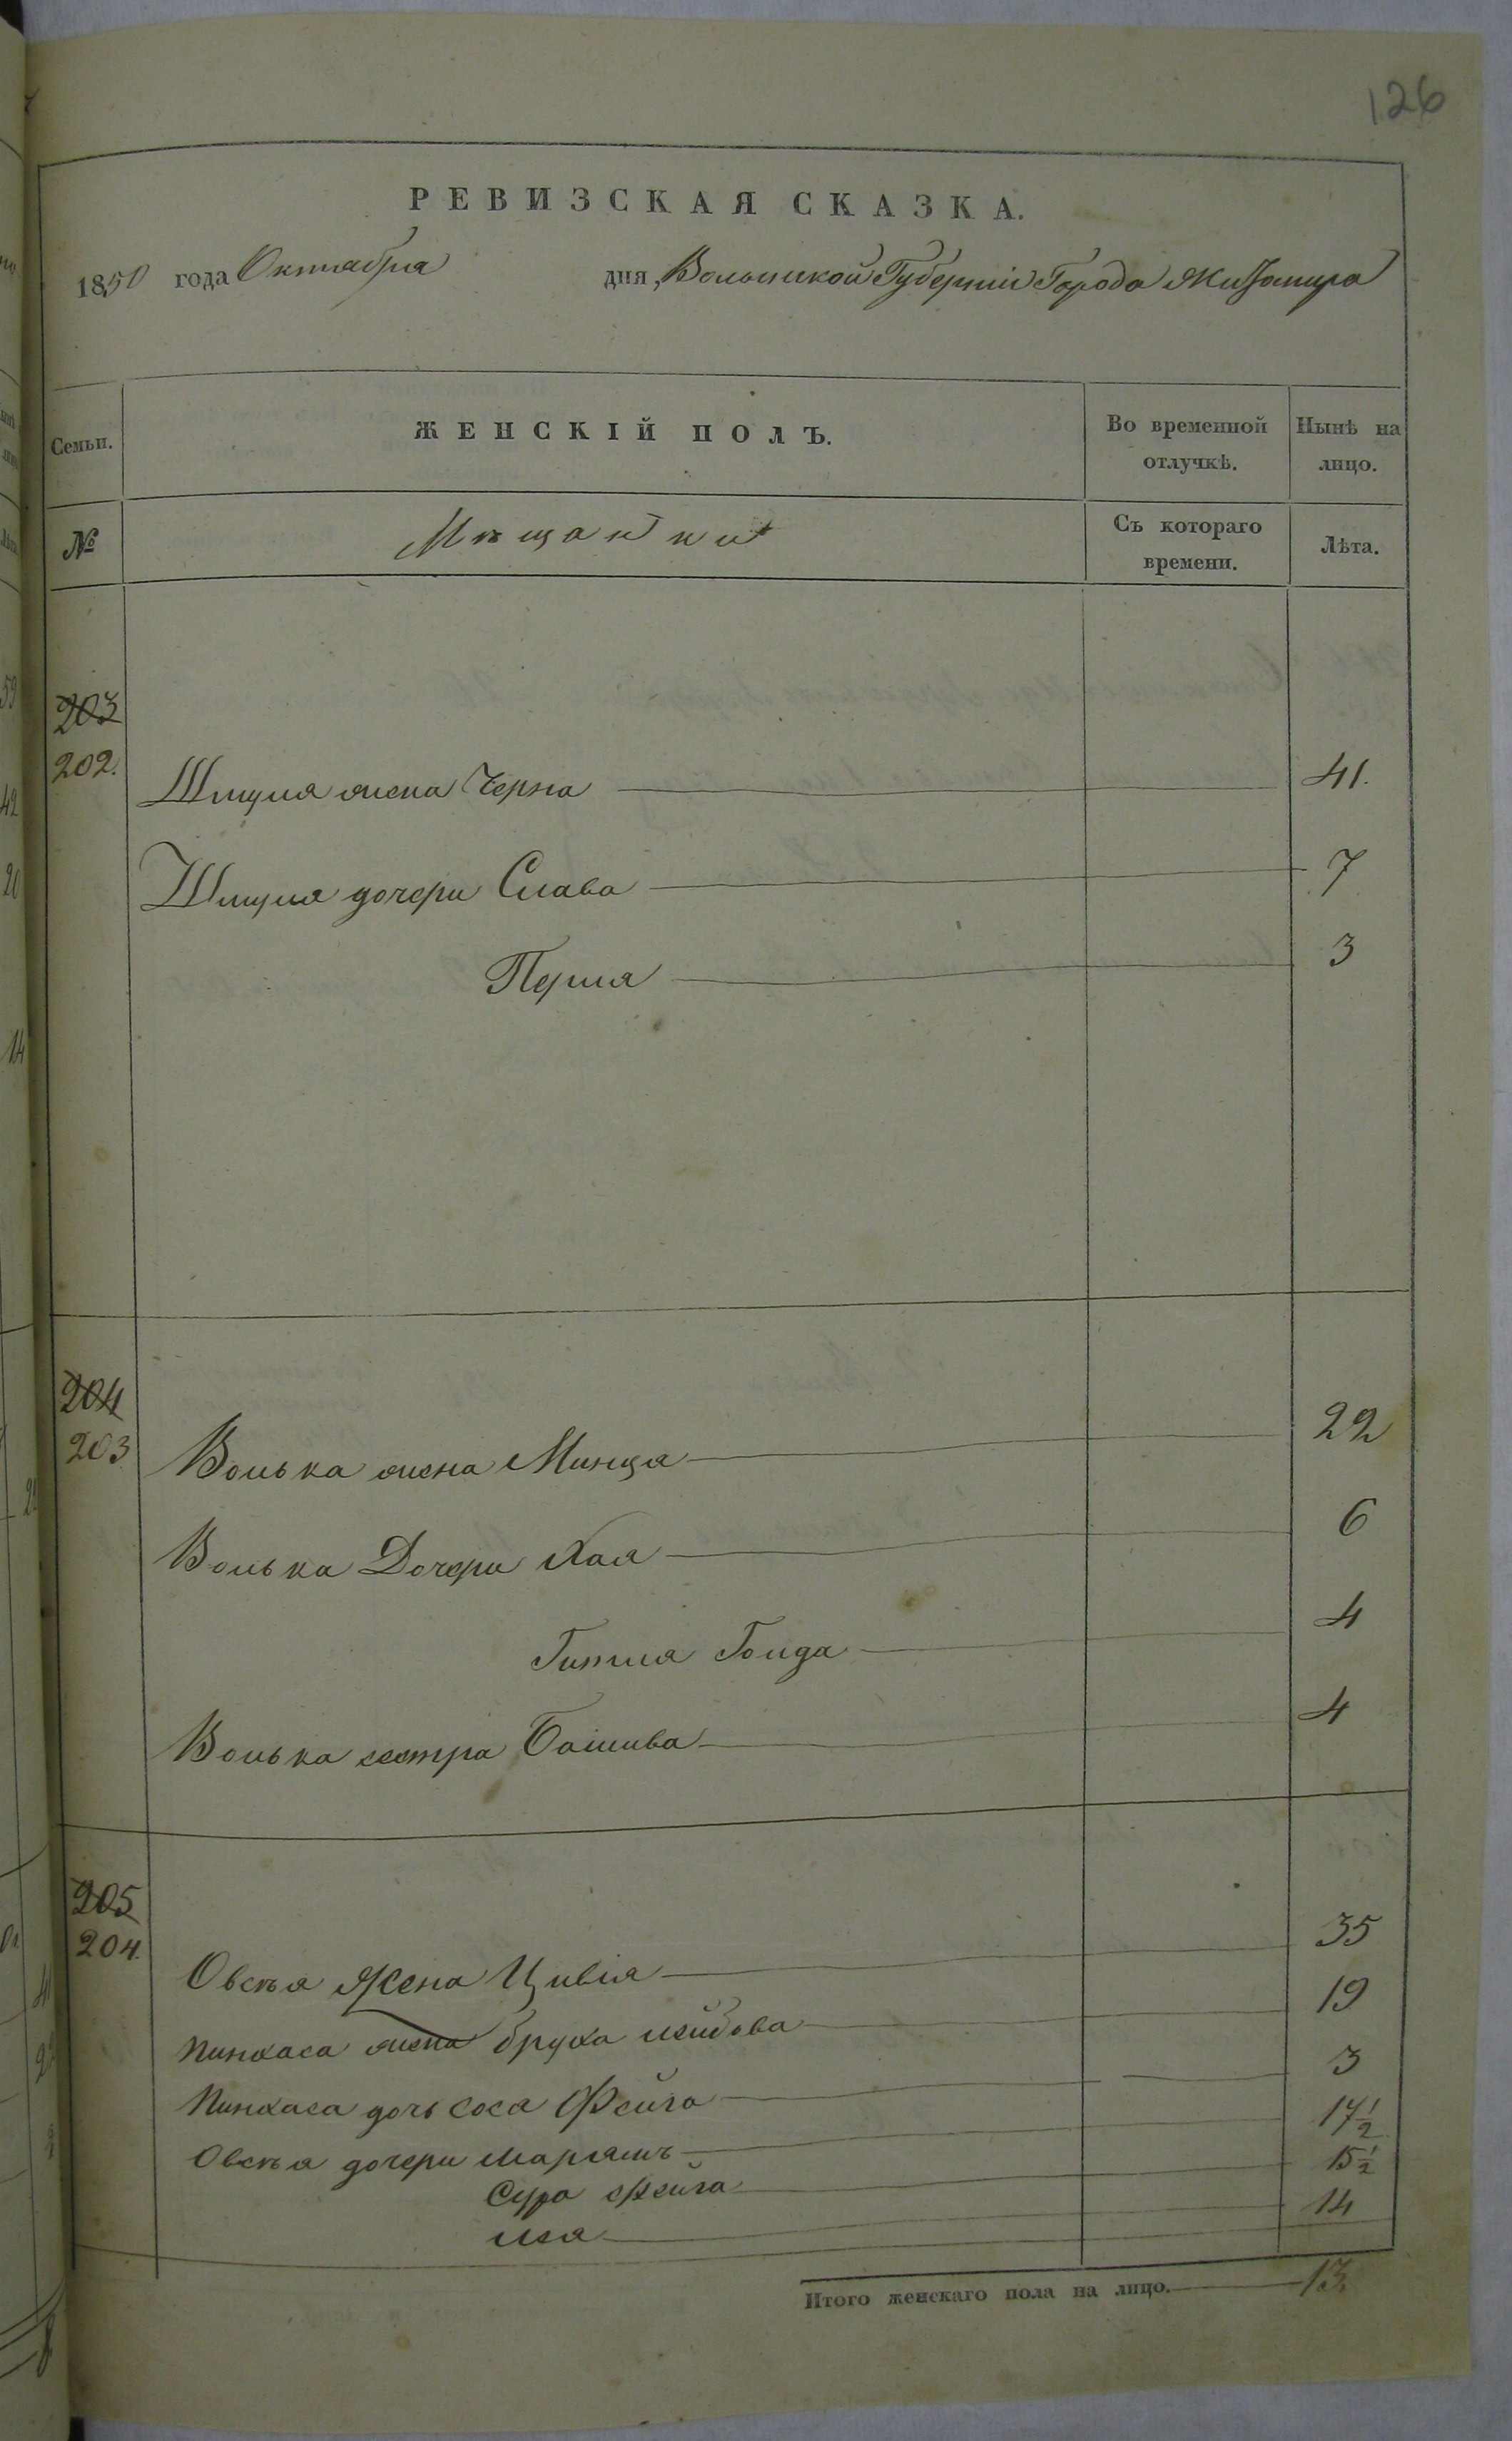 126
РЕВИЗСКАЯ СКАЗКА.
1850 года Октября дня, Волынской Губернии Города Житомира
Семьи. ЖЕНСКІЙ ПОЛЪ. Во временной отлучкѣ. Нынѣ на лицо.
№ Мѣщанки Съ котораго времени. Лѣта.
203
202. Шмуля жена Черна 41.
Шмуля дочери Слава 7
Перля 3
204
203 Волька жена Минця 22
Волька Дочери Хая 6
Гитля Голда 4
Волька сестра Башива 4
205
204. Овсѣя Жена Цивія 35
Пинхаса жена бруха 19
Пинхаса дочь сося Фейга 3
Овсѣя дочери Маріямъ 17 1/2
Сура Фейга 15 1/2
14
Итого женскаго пола на лицо. 13.